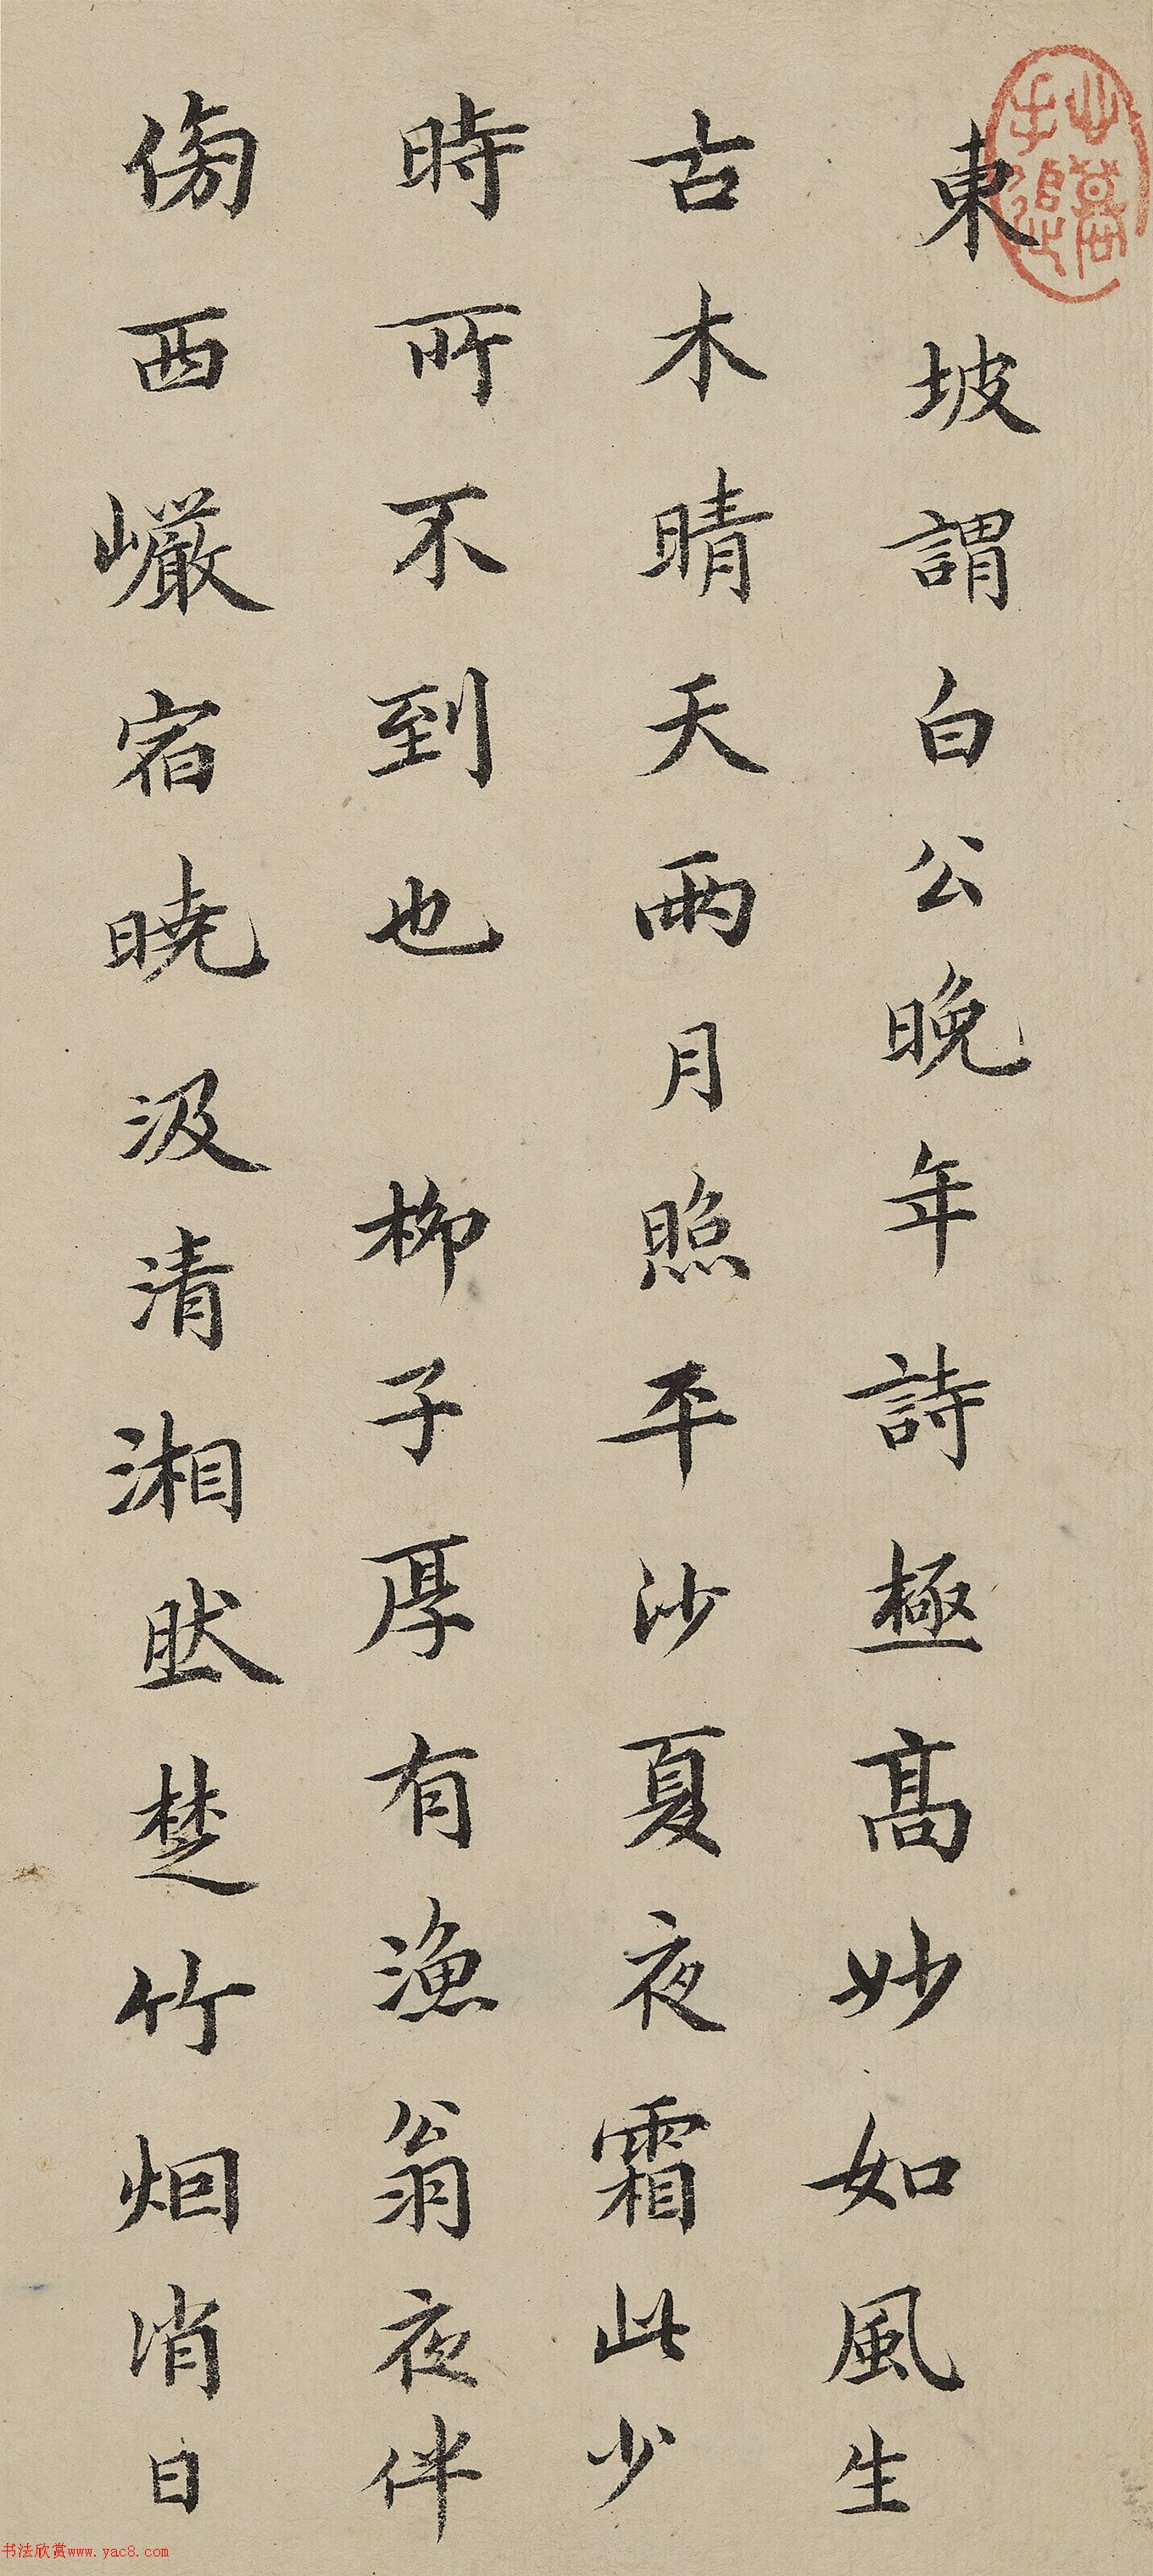 東坡謂白公晚年詩極高妙如風生
古木晴天雨月照平沙夏夜霜此少
時所不到也 柳子厚有漁翁夜伴
傍西巖宿曉汲清湘然楚竹烟消日
书法欣赏www.yac8.com